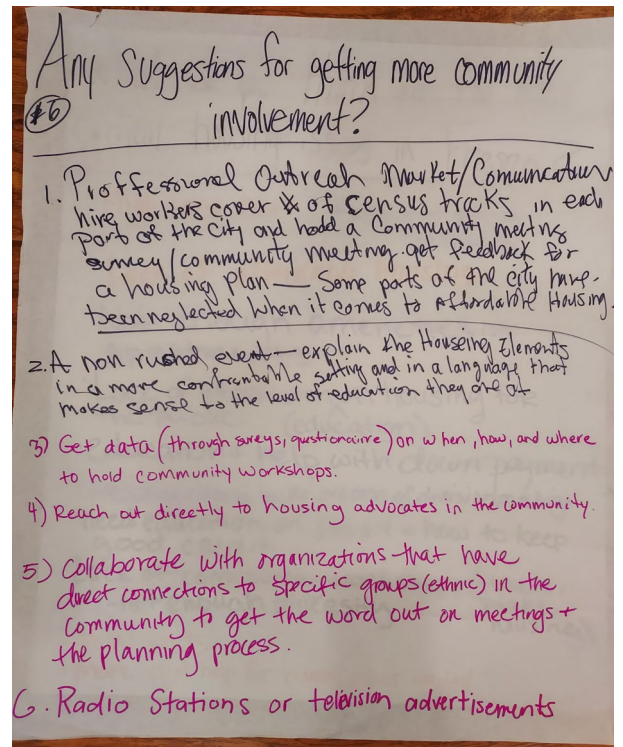 Any Suggestions for getting more community
#6
involvement?
1. Proffessional Outreach Market/Comumcation
hire workers cover of census tracks in each
part of the city and hodd a Community meeting
survey/community meeting. get feedback for
a housing plan — Some parts of the city have
been neglected when it comes to Affordable Housing.
2. A non rushed event — explain the Houseing Elements
in a more comfrontable setting and in a language that
makes sense to the level of education they are at
3) Get data (through sureys, qustionaire) on when, how, and where
to hold community workshops.
4) Reach out directly to housing advocates in the community.
5) Collaborate with organizations that have
direct connections to specific groups (ethnic) in the
community to get the word out on meetings +
the planning process.
6. Radio Stations or television advertisements